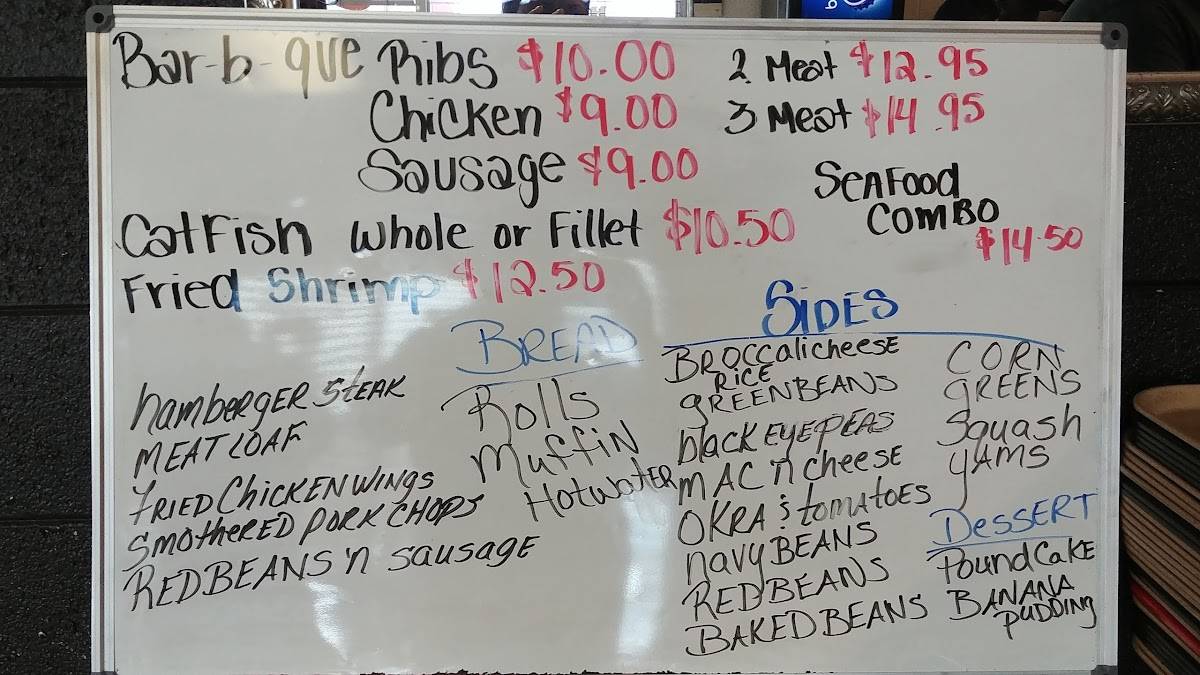 Bar-b-que Ribs $10.00
Chicken $9.00
Sausage $9.00
2 Meat $12.95
3 Meat $14.95
SeAFood
COMBO
$14.50
CatFish whole or Fillet $10.50
Fried Shrimp $12.50
hambergER StEAK
MEATLOAF
FRIED ChickEN wiNgs
SmothERED PORK CHOPS
REDBEANS 'n sausagE
BREAD
Rolls
Muffin
Hotwater
SIDES
BROCCalicheese
RICE
gREENBEANS
black EYEPEAS
MAC 'n cheese
OKRA & tomatoes
navy BEANS
REDBEANS
BAKED BEANS
CORN
gREENS
Squash
YAMS
DesSERT
Pound CakE
BANANA
PUDDINg